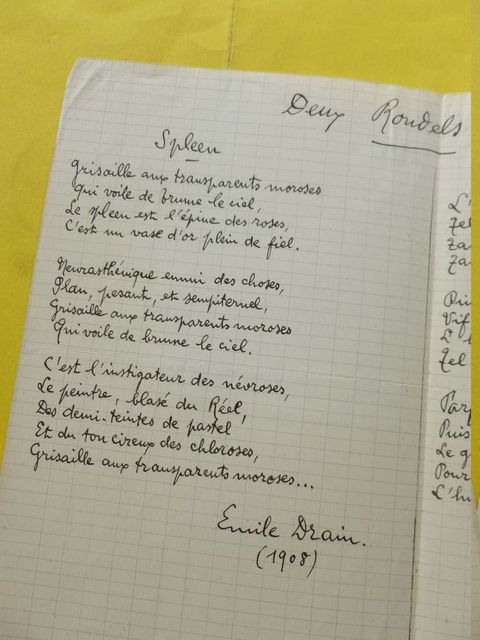 Deux Rondels
Spleen
Grisaille aux transparents moroses
Qui voile de brune le ciel,
Le spleen est l'épine des roses,
C'est un vase d'or plein de fiel.
Neurasthénique ennui des choses,
Plan, pesant, et sempiternel,
Grisaille aux transparents moroses
Qui voile de brune le ciel.
C'est l'instigateur des névroses,
Le peintre, blasé du Réel,
Des demi-teintes de pastel
Et du ton cireux des chloroses,
Grisaille aux transparents moroses...
Emile Drain.
(1908)
L'
Tel
Vif
L'
Tel
Puis
Le
Pour